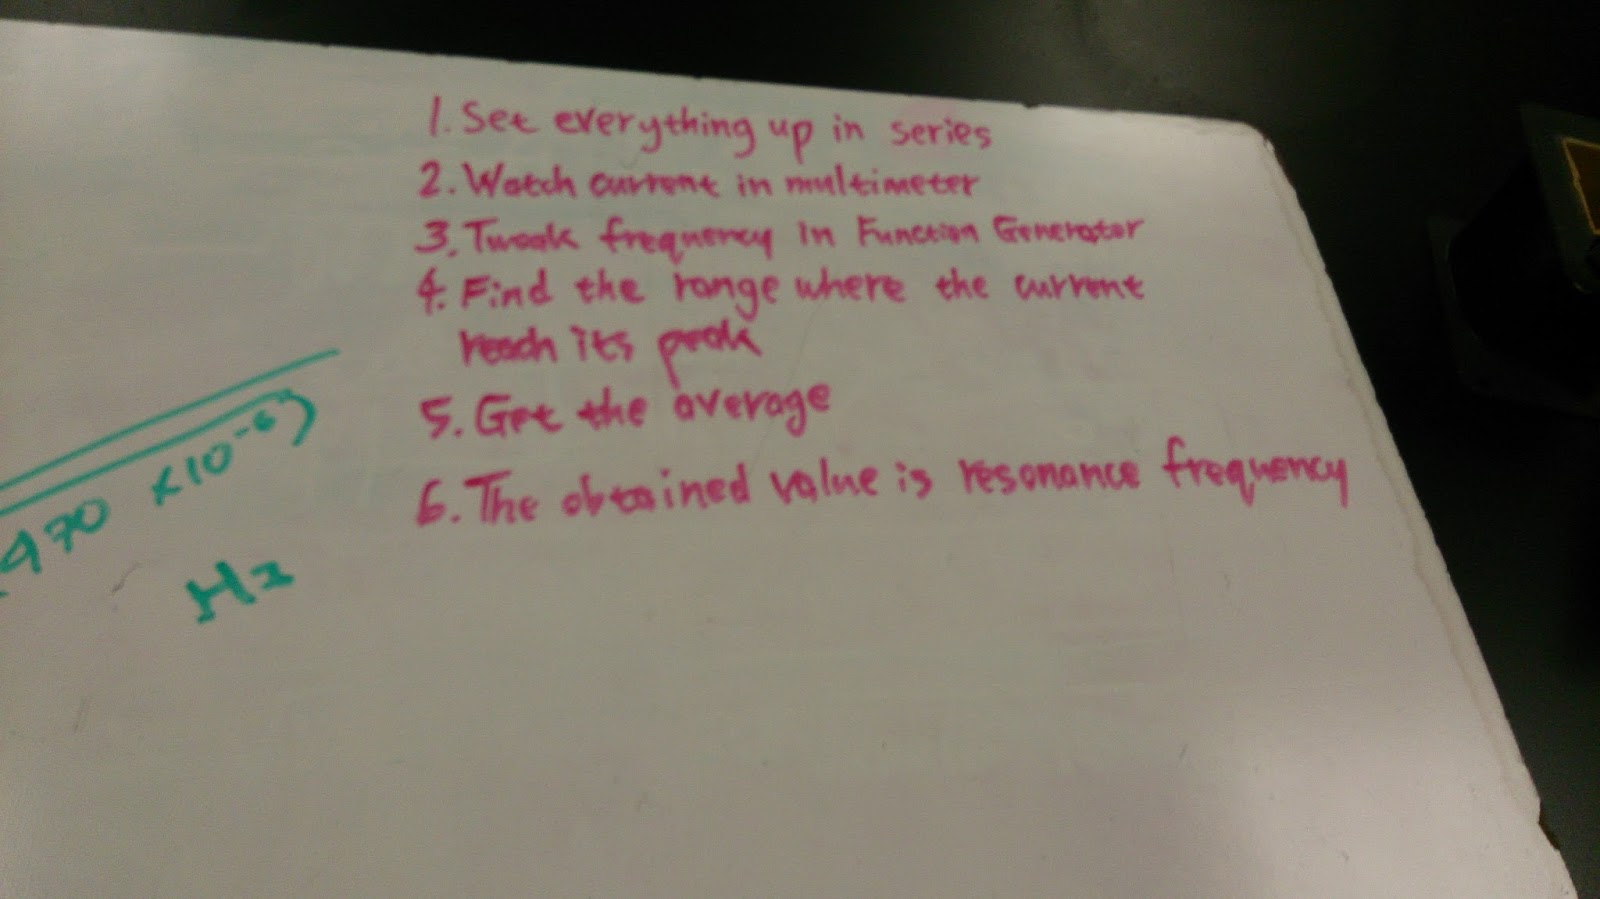 1. Set everything up in series
2. Watch current in multimeter
3. Tweak frequency in Function Generator
4. Find the range where the current
reach its peak
5. Get the average
6. The obtained value is resonance frequency
470 ×10⁻⁶)
Hz